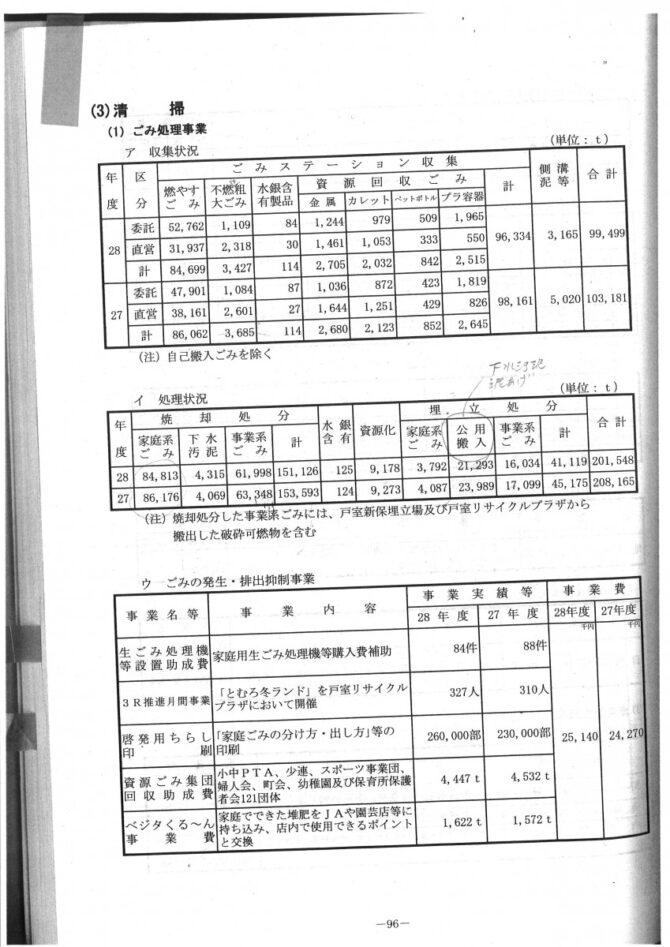 (3)清　掃
(1) ごみ処理事業
ア 収集状況 (単位：t)
年度 区分 ごみステーション収集 側溝泥等 合計
燃やすごみ 不燃粗大ごみ 水銀含有製品 資源回収ごみ 計
金属 カレット ペットボトル プラ容器
28 委託 52,762 1,109 84 1,244 979 509 1,965 96,334 3,165 99,499
直営 31,937 2,318 30 1,461 1,053 333 550
計 84,699 3,427 114 2,705 2,032 842 2,515
27 委託 47,901 1,084 87 1,036 872 423 1,819 98,161 5,020 103,181
直営 38,161 2,601 27 1,644 1,251 429 826
計 86,062 3,685 114 2,680 2,123 852 2,645
(注) 自己搬入ごみを除く
イ 処理状況 (単位：t)
年度 焼却処分 水銀含有 資源化 埋立処分 合計
家庭系ごみ 下水汚泥 事業系ごみ 計 家庭系ごみ 公用搬入 事業系ごみ 計
28 84,813 4,315 61,998 151,126 125 9,178 3,792 21,293 16,034 41,119 201,548
27 86,176 4,069 63,348 153,593 124 9,273 4,087 23,989 17,099 45,175 208,165
(注) 焼却処分した事業系ごみには、戸室新保埋立場及び戸室リサイクルプラザから
搬出した破砕可燃物を含む
ウ ごみの発生・排出抑制事業
事業名等 事業内容 事業実績等 事業費
28年度 27年度 28年度 27年度
千円 千円
生ごみ処理機等設置助成費 家庭用生ごみ処理機等購入費補助 84件 88件 25,140 24,270
3R推進月間事業 「とむろ冬ランド」を戸室リサイクルプラザにおいて開催 327人 310人
啓発用ちらし印刷 「家庭ごみの分け方・出し方」等の印刷 260,000部 230,000部
資源ごみ集団回収助成費 小中PTA、少連、スポーツ事業団、婦人会、町会、幼稚園及び保育所保護者会121団体 4,447 t 4,532 t
ベジタくる～ん事業費 家庭でできた堆肥をJAや園芸店等に持ち込み、店内で使用できるポイントと交換 1,622 t 1,572 t
—96—